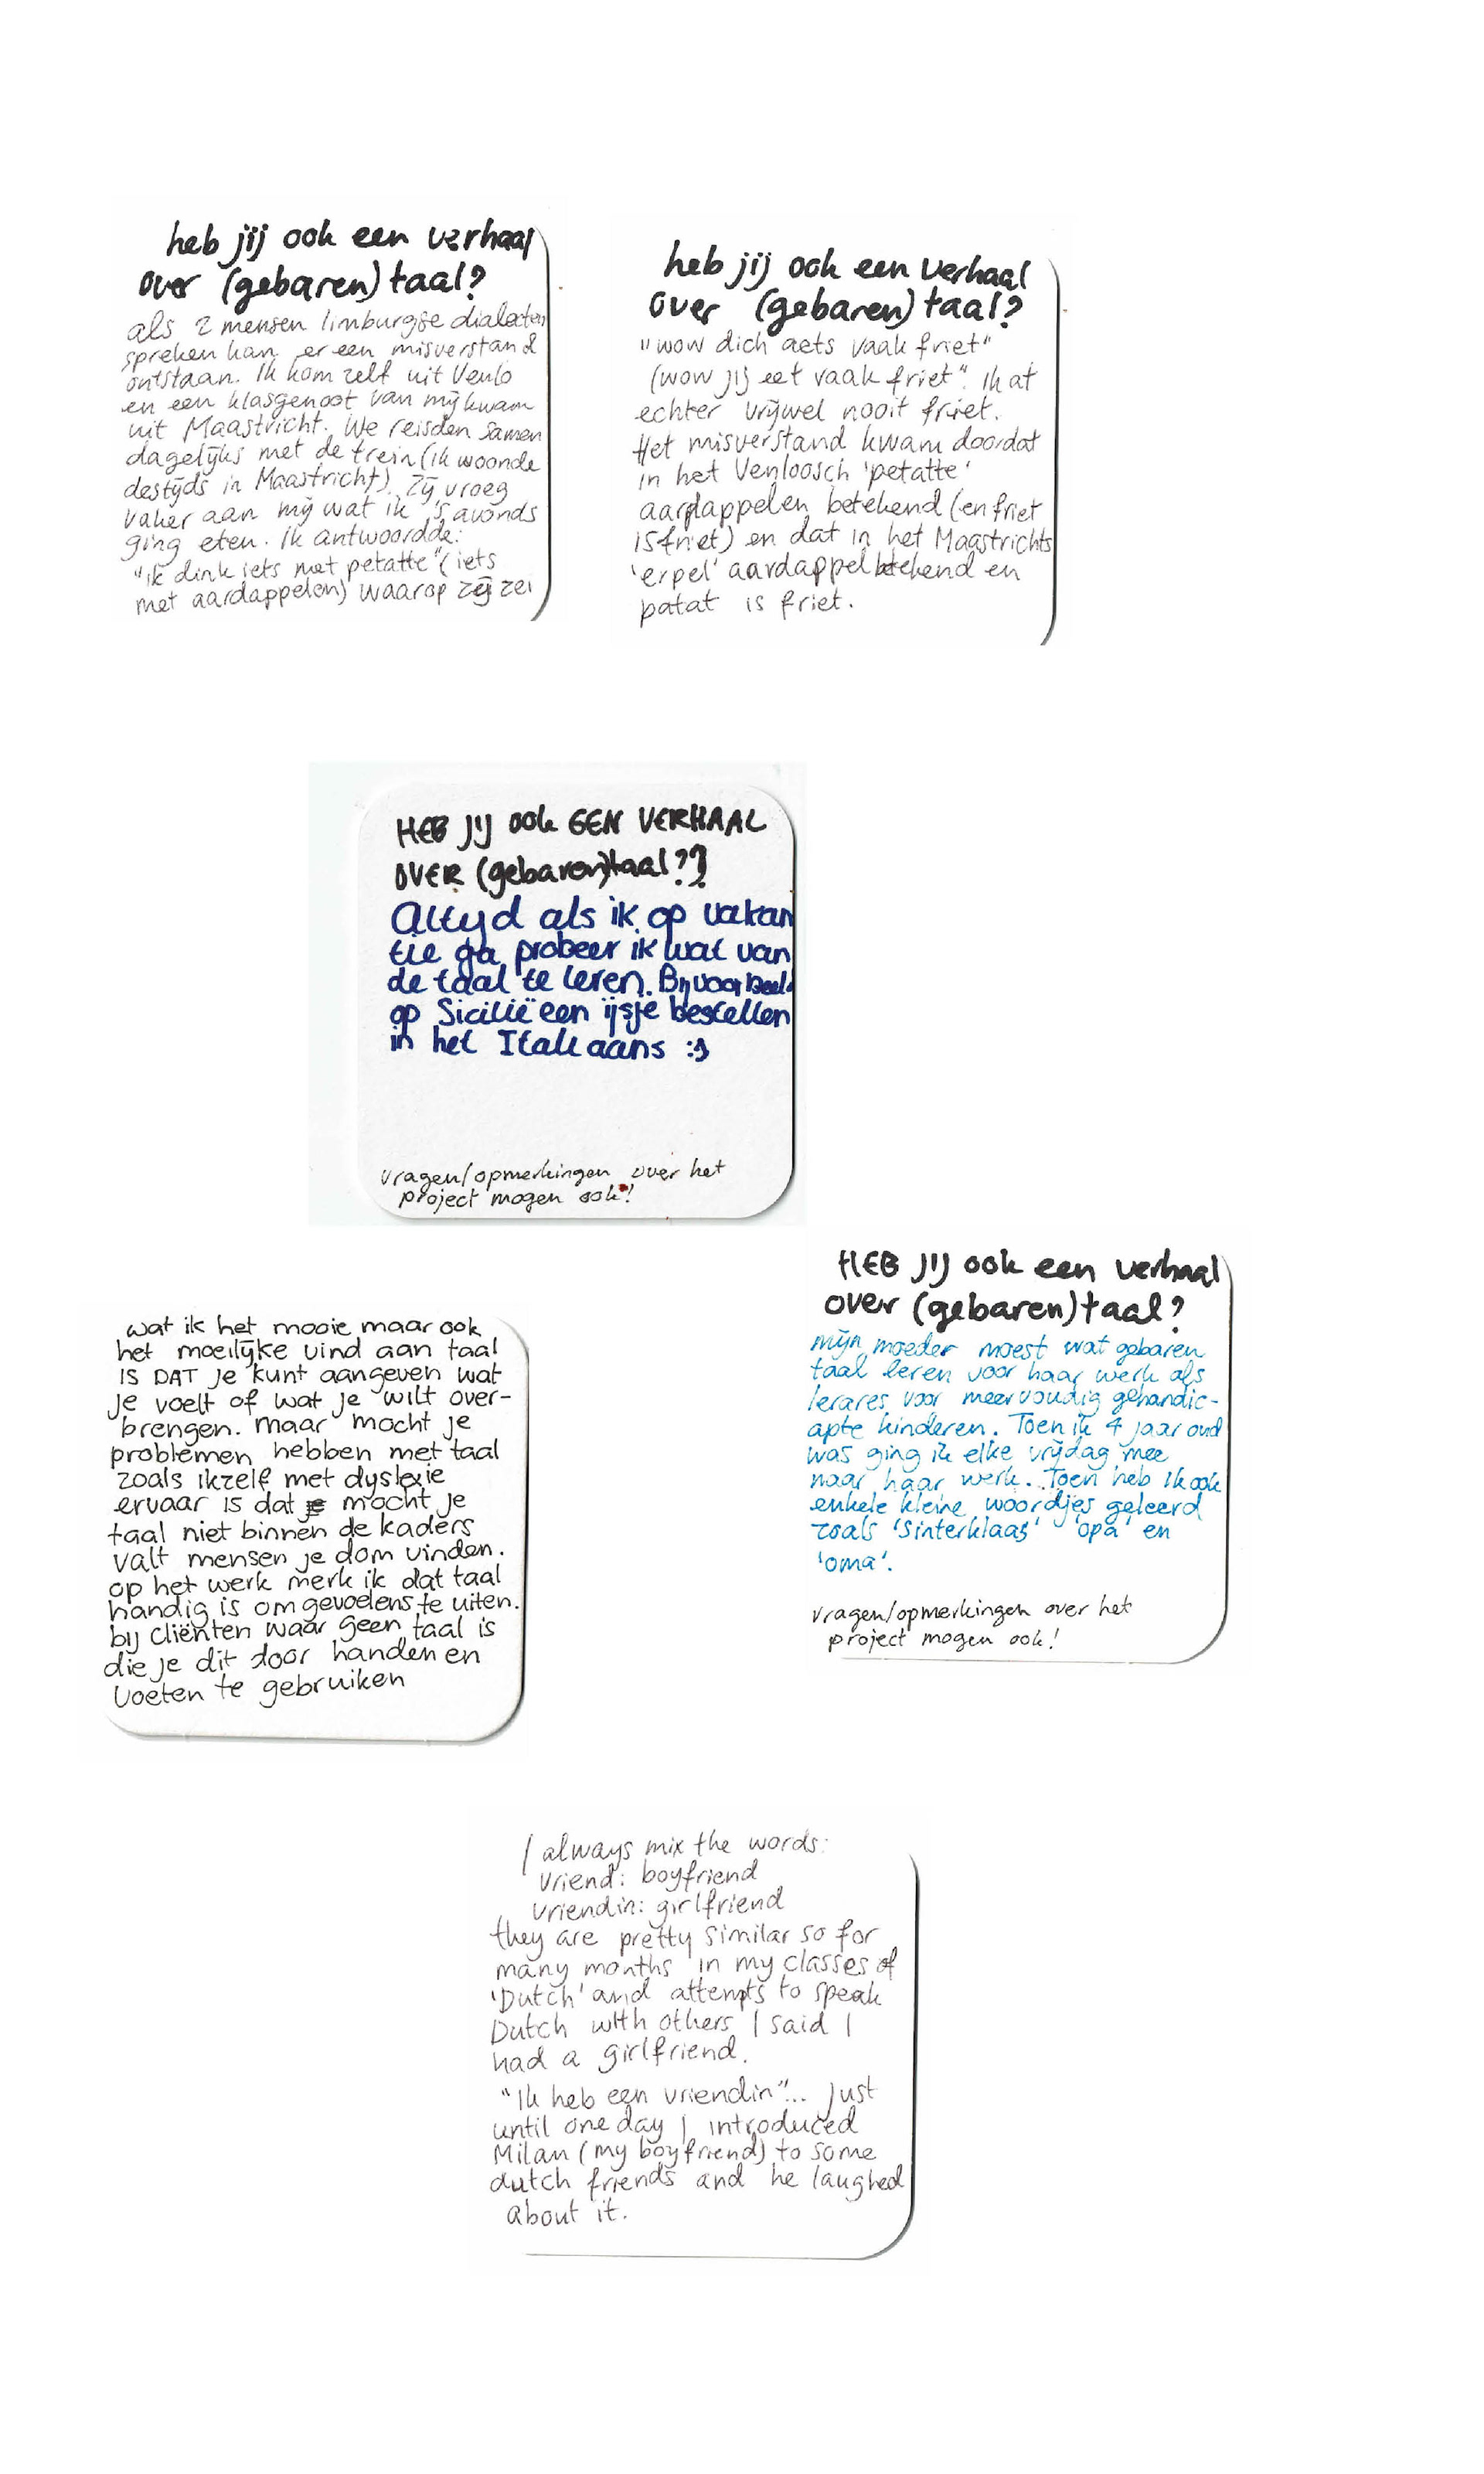 heb jij ook een verhaal
over (gebaren)taal?
als 2 mensen limburgse dialecten
spreken kan er een misverstand
ontstaan. Ik kom zelf uit Venlo
en een klasgenoot van mij kwam
uit Maastricht. We reisden samen
dagelijks met de trein (ik woonde
destijds in Maastricht). Zij vroeg
vaker aan mij wat ik 's avonds
ging eten. Ik antwoordde:
"ik dink iets met petatte" (iets
met aardappelen) waarop zij zei
heb jij ook een verhaal
over (gebaren)taal?
"wow dich aets vaak friet"
(wow jij eet vaak friet". Ik at
echter vrijwel nooit friet.
Het misverstand kwam doordat
in het Venloosch 'petatte'
aardappelen betekend (en friet
is friet) en dat in het Maastrichts
'erpel' aardappel betekend en
patat is friet.
HEB JIJ ook EEN VERHAAL
OVER (gebaren)taal??
Altijd als ik op vakan
tie ga probeer ik wat van
de taal te leren. Bijvoorbeeld
op Sicilië een ijsje bestellen
in het Italiaans :)
vragen/opmerkingen over het
project mogen ook!
HEB JIJ ook een verhaal
over (gebaren)taal?
mijn moeder moest wat gebaren
taal leren voor haar werk als
lerares voor meervoudig gehandic-
apte kinderen. Toen ik 4 jaar oud
was ging ik elke vrijdag mee
naar haar werk. Toen heb ik ook
enkele kleine woordjes geleerd
zoals 'Sinterklaas' 'opa' en
'oma'.
vragen/opmerkingen over het
project mogen ook!
wat ik het mooie maar ook
het moeilijke vind aan taal
IS DAT je kunt aangeven wat
je voelt of wat je wilt over-
brengen. maar mocht je
problemen hebben met taal
zoals ikzelf met dyslexie
ervaar is dat mocht je
taal niet binnen de kaders
valt mensen je dom vinden.
op het werk merk ik dat taal
handig is om gevoelens te uiten.
bij cliënten waar geen taal is
die je dit door handen en
voeten te gebruiken
I always mix the words:
vriend: boyfriend
vriendin: girlfriend
they are pretty similar so for
many months in my classes of
'Dutch' and attempts to speak
Dutch with others I said I
had a girlfriend.
"Ik heb een vriendin"... Just
until one day I introduced
Milan (my boyfriend) to some
dutch friends and he laughed
about it.